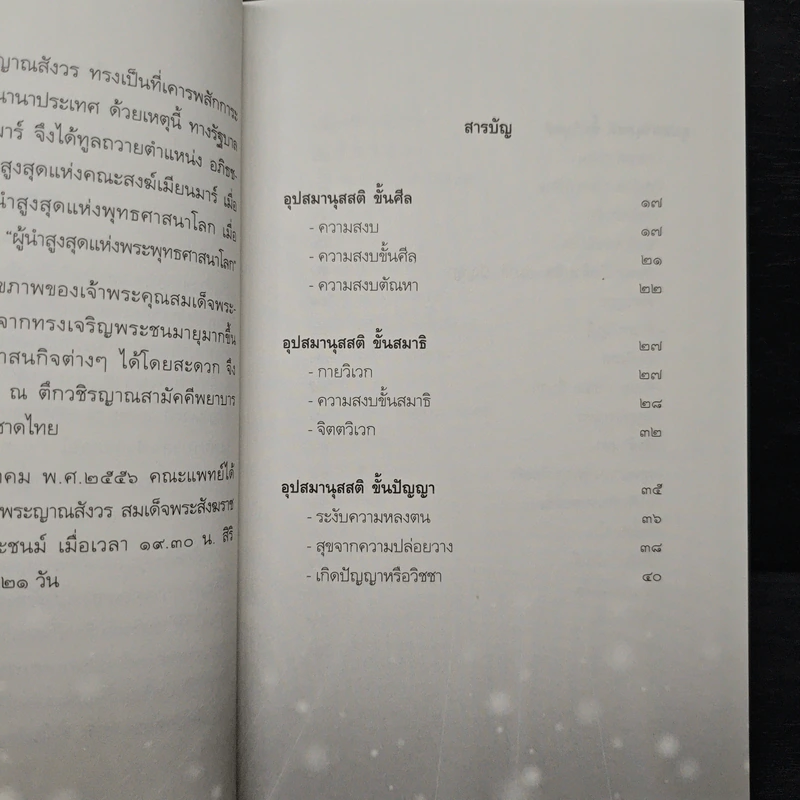 ญาณสังวร ทรงเป็นที่เคารพสักการะ
นานาประเทศ ด้วยเหตุนี้ ทางรัฐบาล
มาร์ จึงได้ทูลถวายตำแหน่ง อภิธช-
สูงสุดแห่งคณะสงฆ์เมียนมาร์ เมื่อ
นำสูงสุดแห่งพุทธศาสนาโลก เมื่อ
"ผู้นำสูงสุดแห่งพระพุทธศาสนาโลก"
ขภาพของเจ้าพระคุณสมเด็จพระ-
จากทรงเจริญพระชนมายุมากขึ้น
าสนกิจต่างๆ ได้โดยสะดวก จึง
ณ ตึกวชิรญาณสามัคคีพยาบาร
ชาดไทย
าคม พ.ศ.๒๕๕๖ คณะแพทย์ได้
พระญาณสังวร สมเด็จพระสังฆราช
ะชนม์ เมื่อเวลา ๑๙.๓๐ น. สิริ
๒๑ วัน
สารบัญ
อุปสมานุสสติ ขั้นศีล ๑๗
- ความสงบ ๑๗
- ความสงบขั้นศีล ๒๑
- ความสงบตัณหา ๒๒
อุปสมานุสสติ ขั้นสมาธิ ๒๗
- กายวิเวก ๒๗
- ความสงบขั้นสมาธิ ๒๘
- จิตตวิเวก ๓๒
อุปสมานุสสติ ขั้นปัญญา ๓๕
- ระงับความหลงตน ๓๖
- สุขจากความปล่อยวาง ๓๘
- เกิดปัญญาหรือวิชชา ๔๐